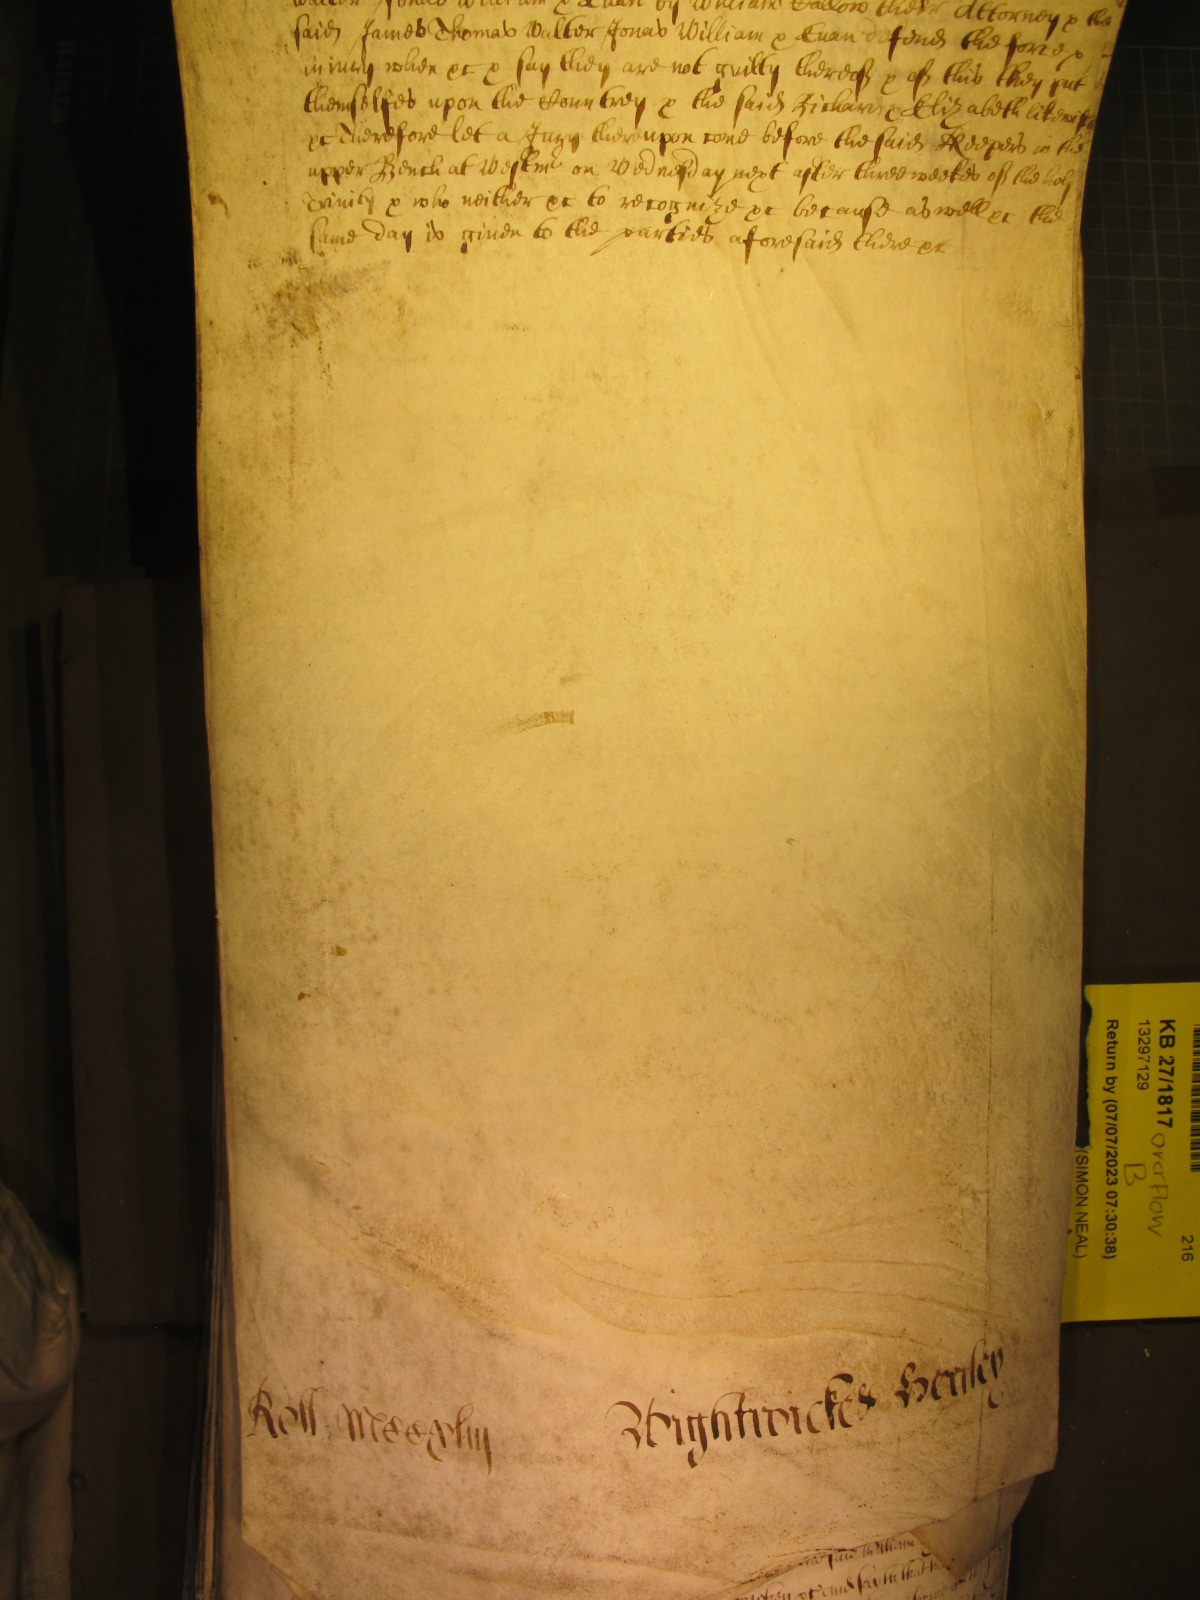 Walter Jonas William & Euan by William Hallow their Attorney & the
said James Thomas Walter Jonas William & Euan defend the force &
iniury when &c & say they are not guilty thereof & of this they put
themselfes upon the Countrey & the said Richard & Elizabeth likewise
&c Therefore let a Jury thereupon come before the said Keepers in the
upper Bench at Westmr on Wednesday next after three weekes of the holy
Trinity & who neither &c to recognize &c because aswell &c the
same day is giuen to the parties aforesaid there &c
Roll
Wightwicke & Henley
KB 27/1817 overflow
B
13297129
Return by (07/07/2023 07:30:38)
(SIMON NEAL)
216